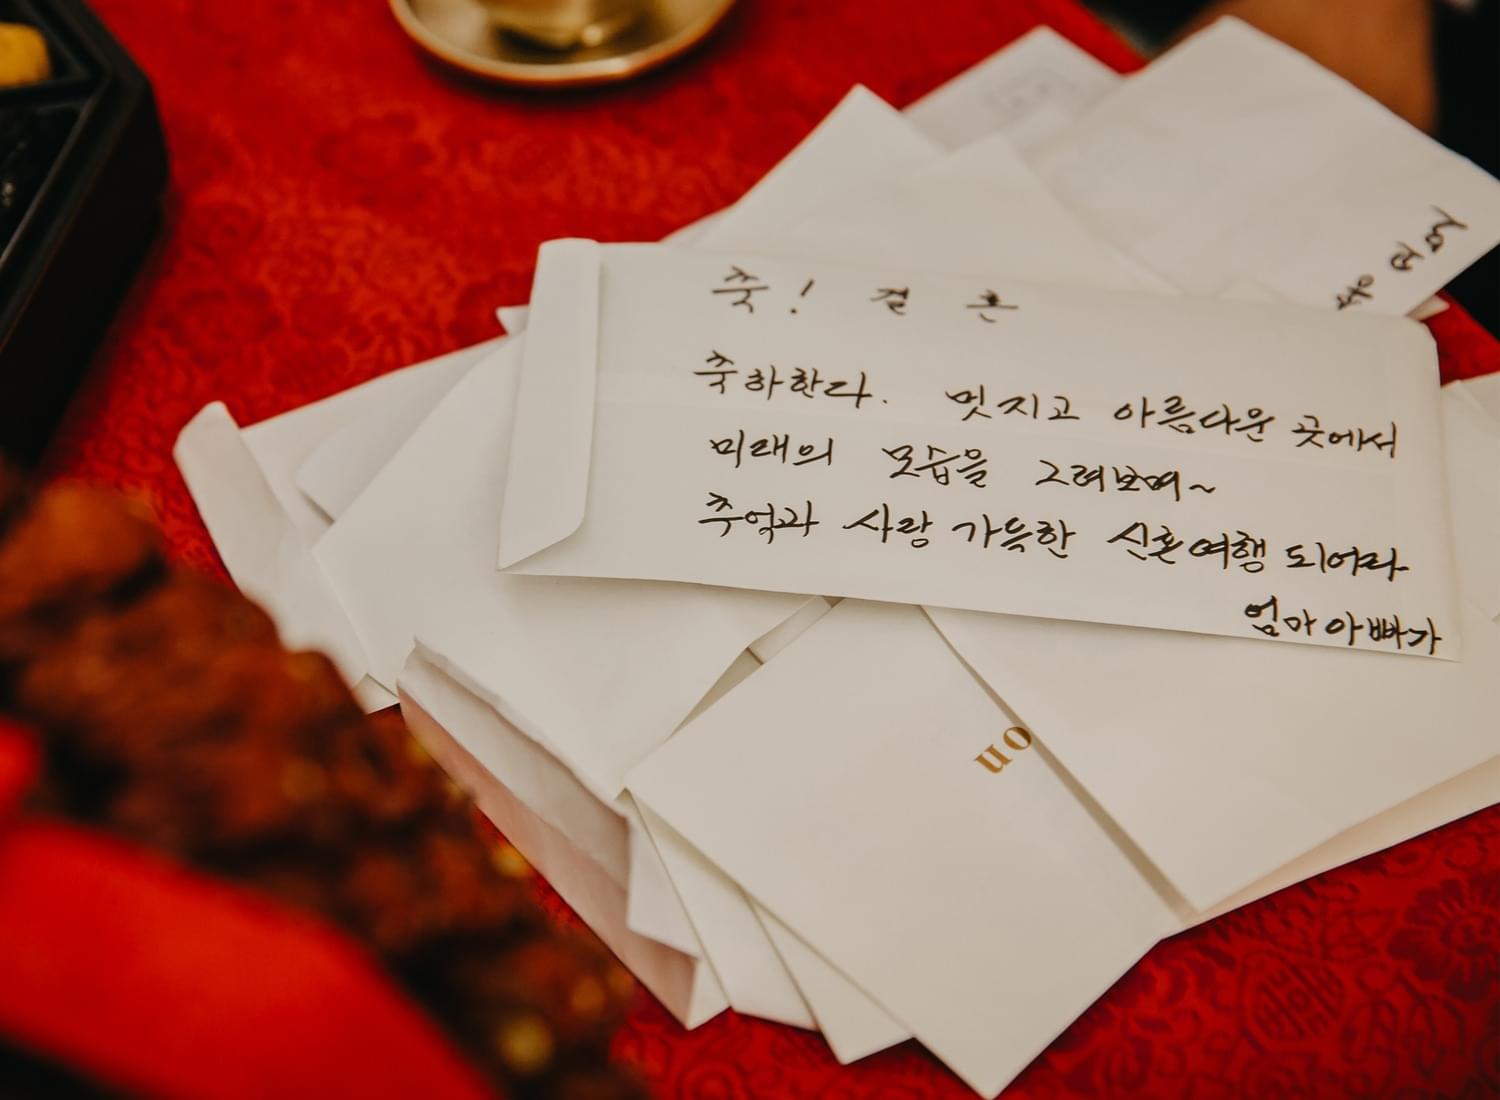 축! 결 혼
축하한다. 멋지고 아름다운 곳에서
미래의 모습을 그려보며~
추억과 사랑 가득한 신혼여행 되어라
엄마 아빠가
on